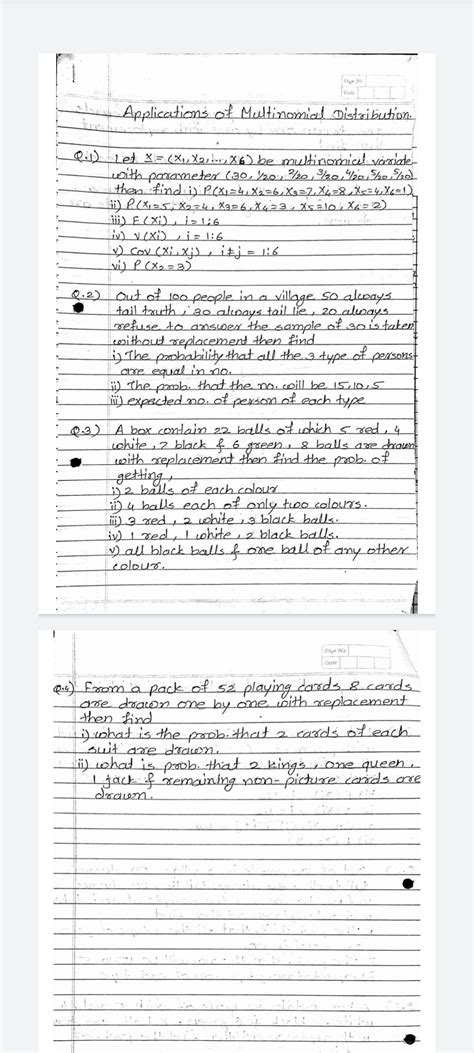 Page No.
Date
Applications of Multinomial Distribution.
Q.1) Let X = (X1, X2, ..., X6) be multinomial variate
with parameter (30, 1/20, 2/20, 3/20, 4/20, 5/20, 5/20)
then find i) P(X1=4, X2=6, X3=7, X4=8, X5=4, X6=1)
ii) P(X1=5, X2=4, X3=6, X4=3, X5=10, X6=2)
iii) E(Xi), i=1:6
iv) V(Xi), i=1:6
v) Cov (Xi, Xj), i≠j = 1:6
vi) P(X2=3)
Q.2) Out of 100 people in a village 50 always
tail truth, 30 always tail lie, 20 always
refuse to answer the sample of 30 is taken
without replacement then find
i) The probability that all the 3 type of persons
are equal in no.
ii) The prob. that the no. will be 15, 10, 5
iii) expected no. of person of each type
Q.3) A box contain 22 balls of which 5 red, 4
white, 7 black & 6 green, 8 balls are drawn
with replacement then find the prob. of
getting,
i) 2 balls of each colour
ii) 4 balls each of only two colours.
iii) 3 red, 2 white, 3 black balls.
iv) 1 red, 1 white, 2 black balls.
v) all black balls & one ball of any other
colour.
Page No.
Date
Q.4) From a pack of 52 playing cards 8 cards
are drawn one by one with replacement
then find
i) what is the prob. that 2 cards of each
suit are drawn.
ii) what is prob. that 2 kings, one queen,
1 jack & remaining non-picture cards are
drawn.